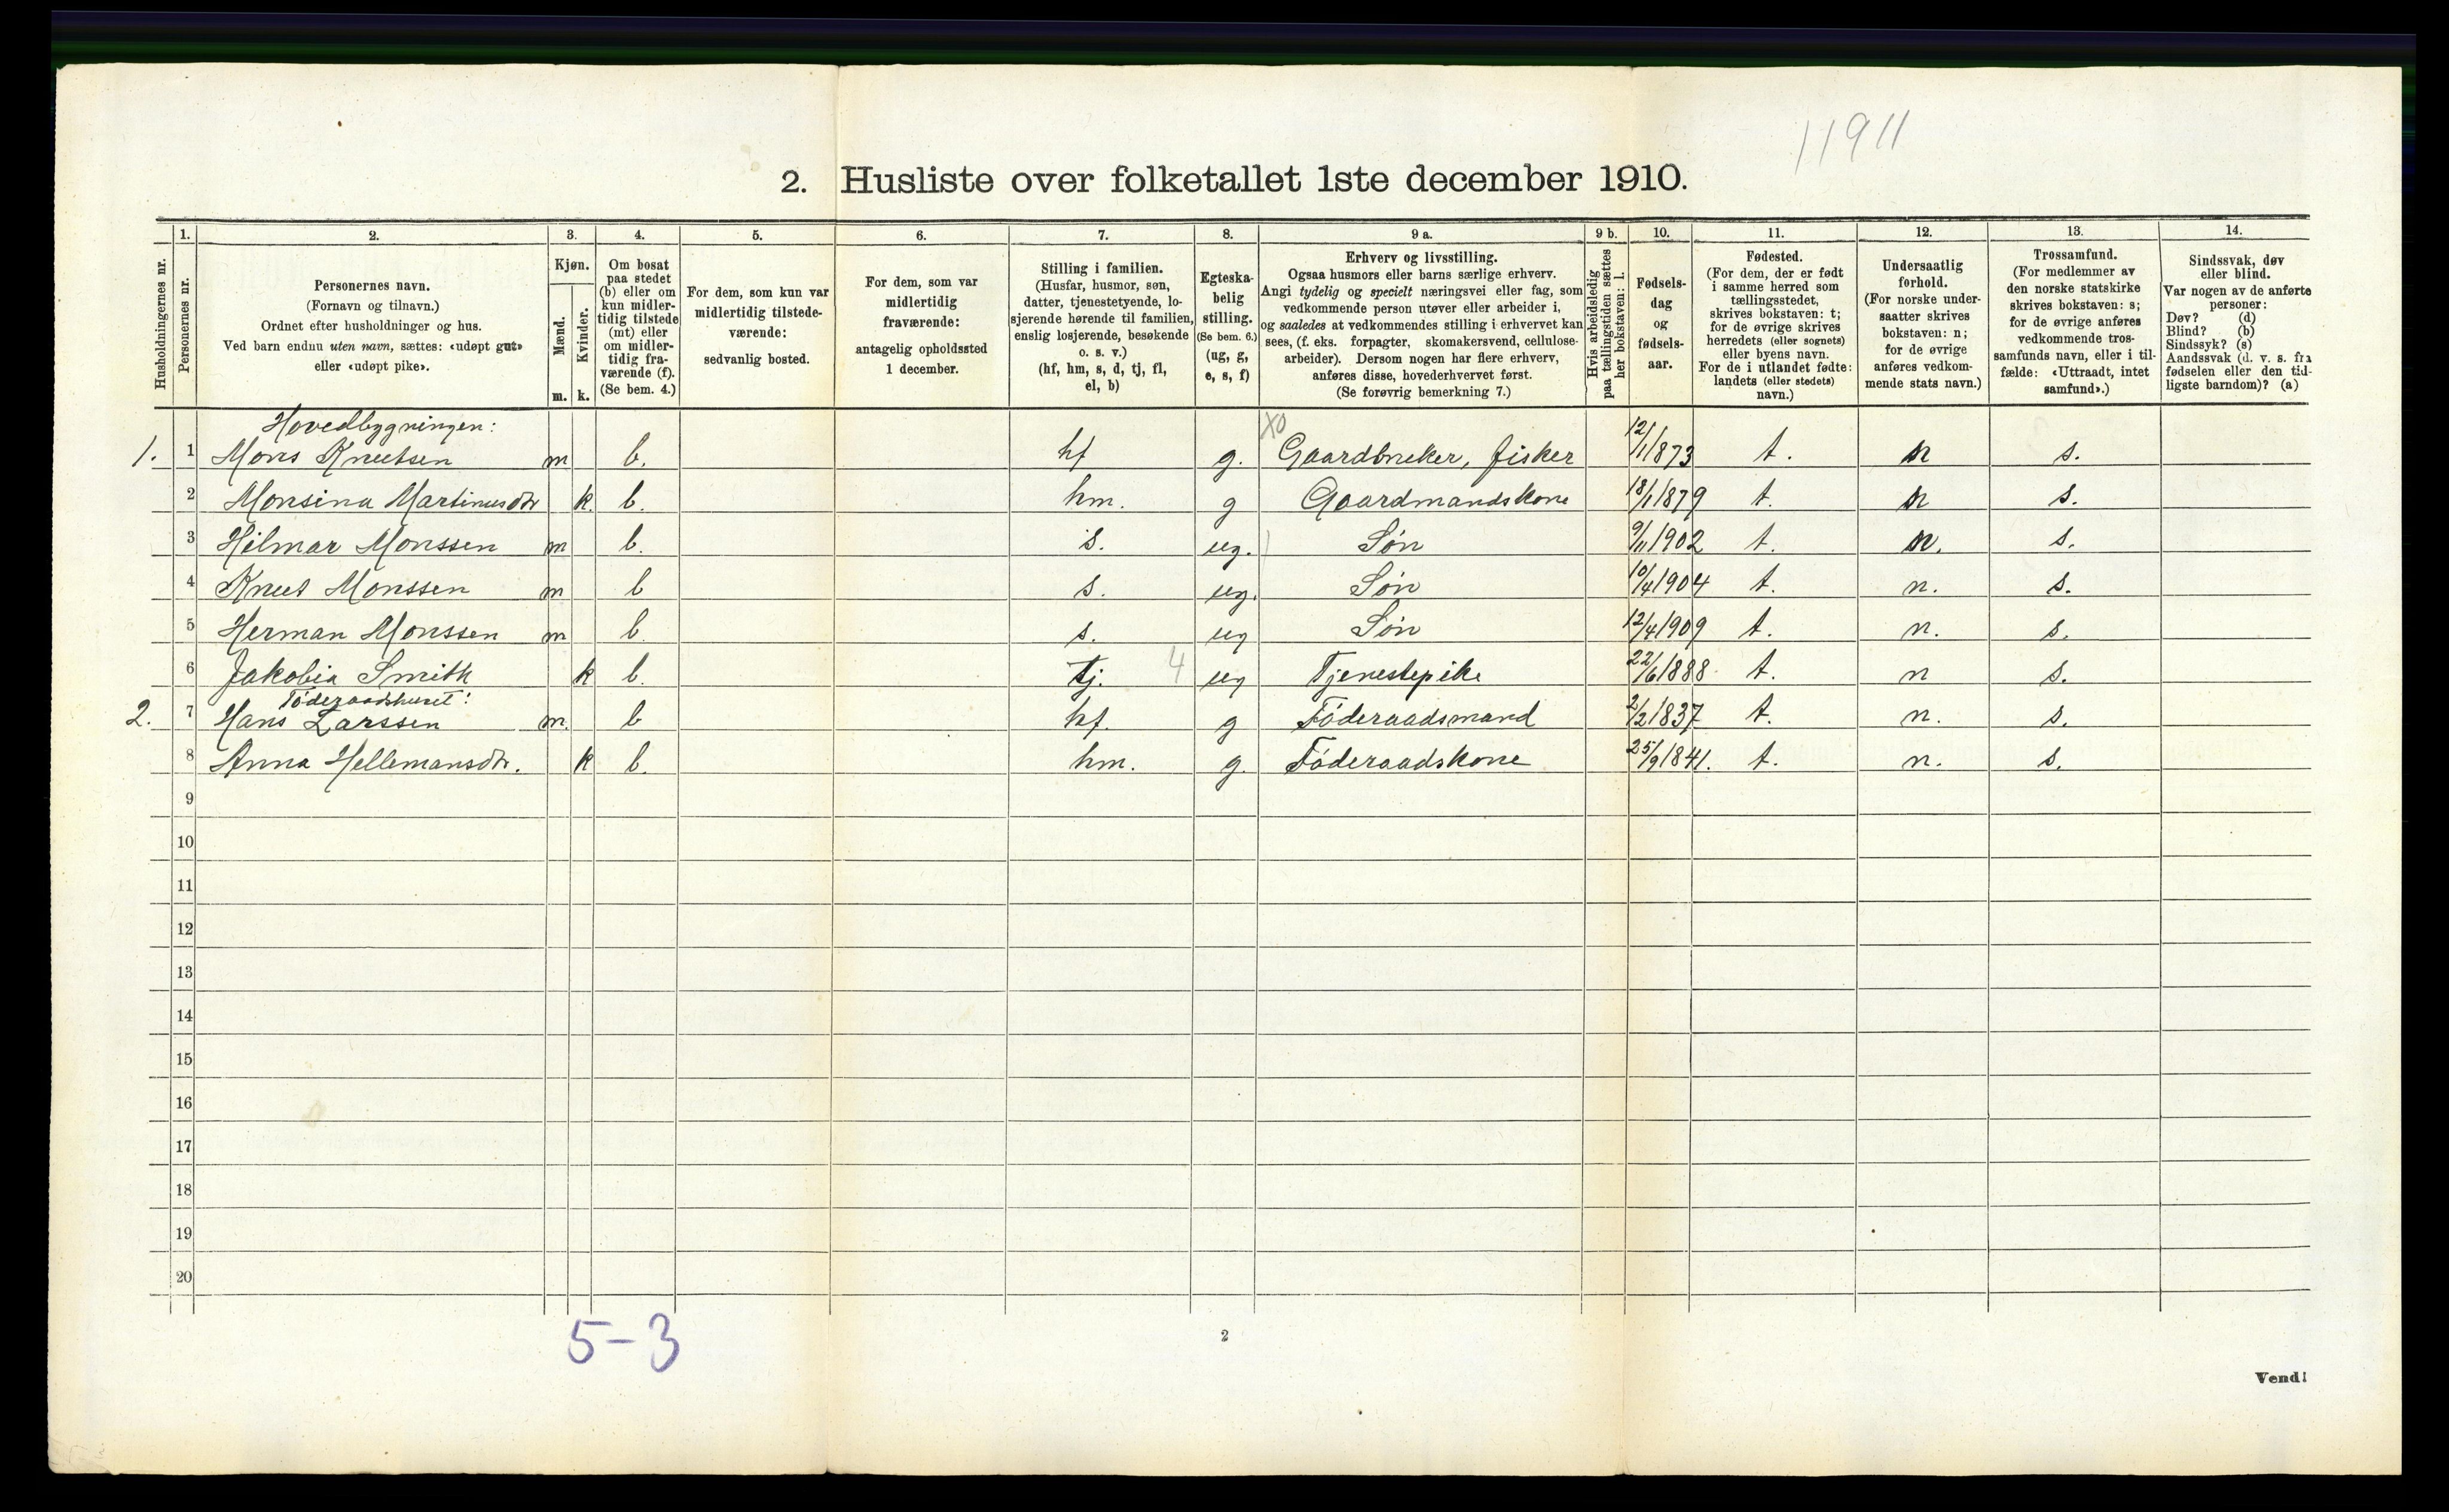 11911
2. Husliste over folketallet 1ste december 1910.
Husholdningernes nr.
1.
Personernes nr.
2.
Personernes navn.
(Fornavn og tilnavn.)
Ordnet efter husholdninger og hus.
Ved barn endnu uten navn, sættes: «udøpt gut»
eller «udøpt pike».
3.
Kjøn.
Mænd.
Kvinder.
m. k.
4.
Om bosat
paa stedet
(b) eller om
kun midler-
tidig tilstede
(mt) eller
om midler-
tidig fra-
værende (f).
(Se bem. 4.)
5.
For dem, som kun var
midlertidig tilstede-
værende:
sedvanlig bosted.
6.
For dem, som var
midlertidig
fraværende:
antagelig opholdssted
1 december.
7.
Stilling i familien.
(Husfar, husmor, søn,
datter, tjenestetyende, lo-
sjerende hørende til familien,
enslig losjerende, besøkende
o. s. v.)
(hf, hm, s, d, tj, fl,
el, b)
8.
Egteska-
belig
stilling.
(Se bem. 6.)
(ug, g,
e, s, f)
9 a.
Erhverv og livsstilling.
Ogsaa husmors eller barns særlige erhverv.
Angi tydelig og specielt næringsvei eller fag, som
vedkommende person utøver eller arbeider i,
og saaledes at vedkommendes stilling i erhvervet kan
sees, (f. eks. forpagter, skomakersvend, cellulose-
arbeider). Dersom nogen har flere erhverv,
anføres disse, hovederhvervet først.
(Se forøvrig bemerkning 7.)
9 b.
Hvis arbeidsledig
paa tællingstiden sættes
her bokstaven: l.
10.
Fødsels-
dag
og
fødsels-
aar.
11.
Fødested.
(For dem, der er født
i samme herred som
tællingsstedet,
skrives bokstaven: t;
for de øvrige skrives
herredets (eller sognets)
eller byens navn.
For de i utlandet fødte:
landets (eller stedets)
navn.)
12.
Undersaatlig
forhold.
(For norske under-
saatter skrives
bokstaven: n;
for de øvrige
anføres vedkom-
mende stats navn.)
13.
Trossamfund.
(For medlemmer av
den norske statskirke
skrives bokstaven: s;
for de øvrige anføres
vedkommende tros-
samfunds navn, eller i til-
fælde: «Uttraadt, intet
samfund».)
14.
Sindssvak, døv
eller blind.
Var nogen av de anførte
personer:
Døv? (d)
Blind? (b)
Sindssyk? (s)
Aandssvak (d. v. s. fra
fødselen eller den tid-
ligste barndom)? (a)
Hovedbygningen:
XO
1. 1 Mons Knutsen m b. hf g. Gaardbruker, fisker 12/1 1873 t. n s.
2 Monsina Martinusdtr k. b. hm. g Gaardmandskone 18/1 1879 t. n s.
3 Hilmar Monssen m b. s. ug. Søn 9/11 1902 t. n. s.
4 Knut Monssen m b s. ug. Søn 10/4 1904 t. n. s.
5 Herman Monssen m b. s. ug Søn 12/4 1909 t. n. s.
6 Jakobia Smith k b. tj. 4 ug Tjenestepike 22/6 1888 t. n s.
Föderaadshuset:
2. 7 Hans Larssen m. b hf. g Föderaadsmand 2/2 1837 t. n. s.
8 Anna Hellemansdtr. k b. hm. g. Föderaadskone 25/9 1841. t. n. s.
9
10
11
12
13
14
15
16
17
18
19
20
5-3
2
Vend!